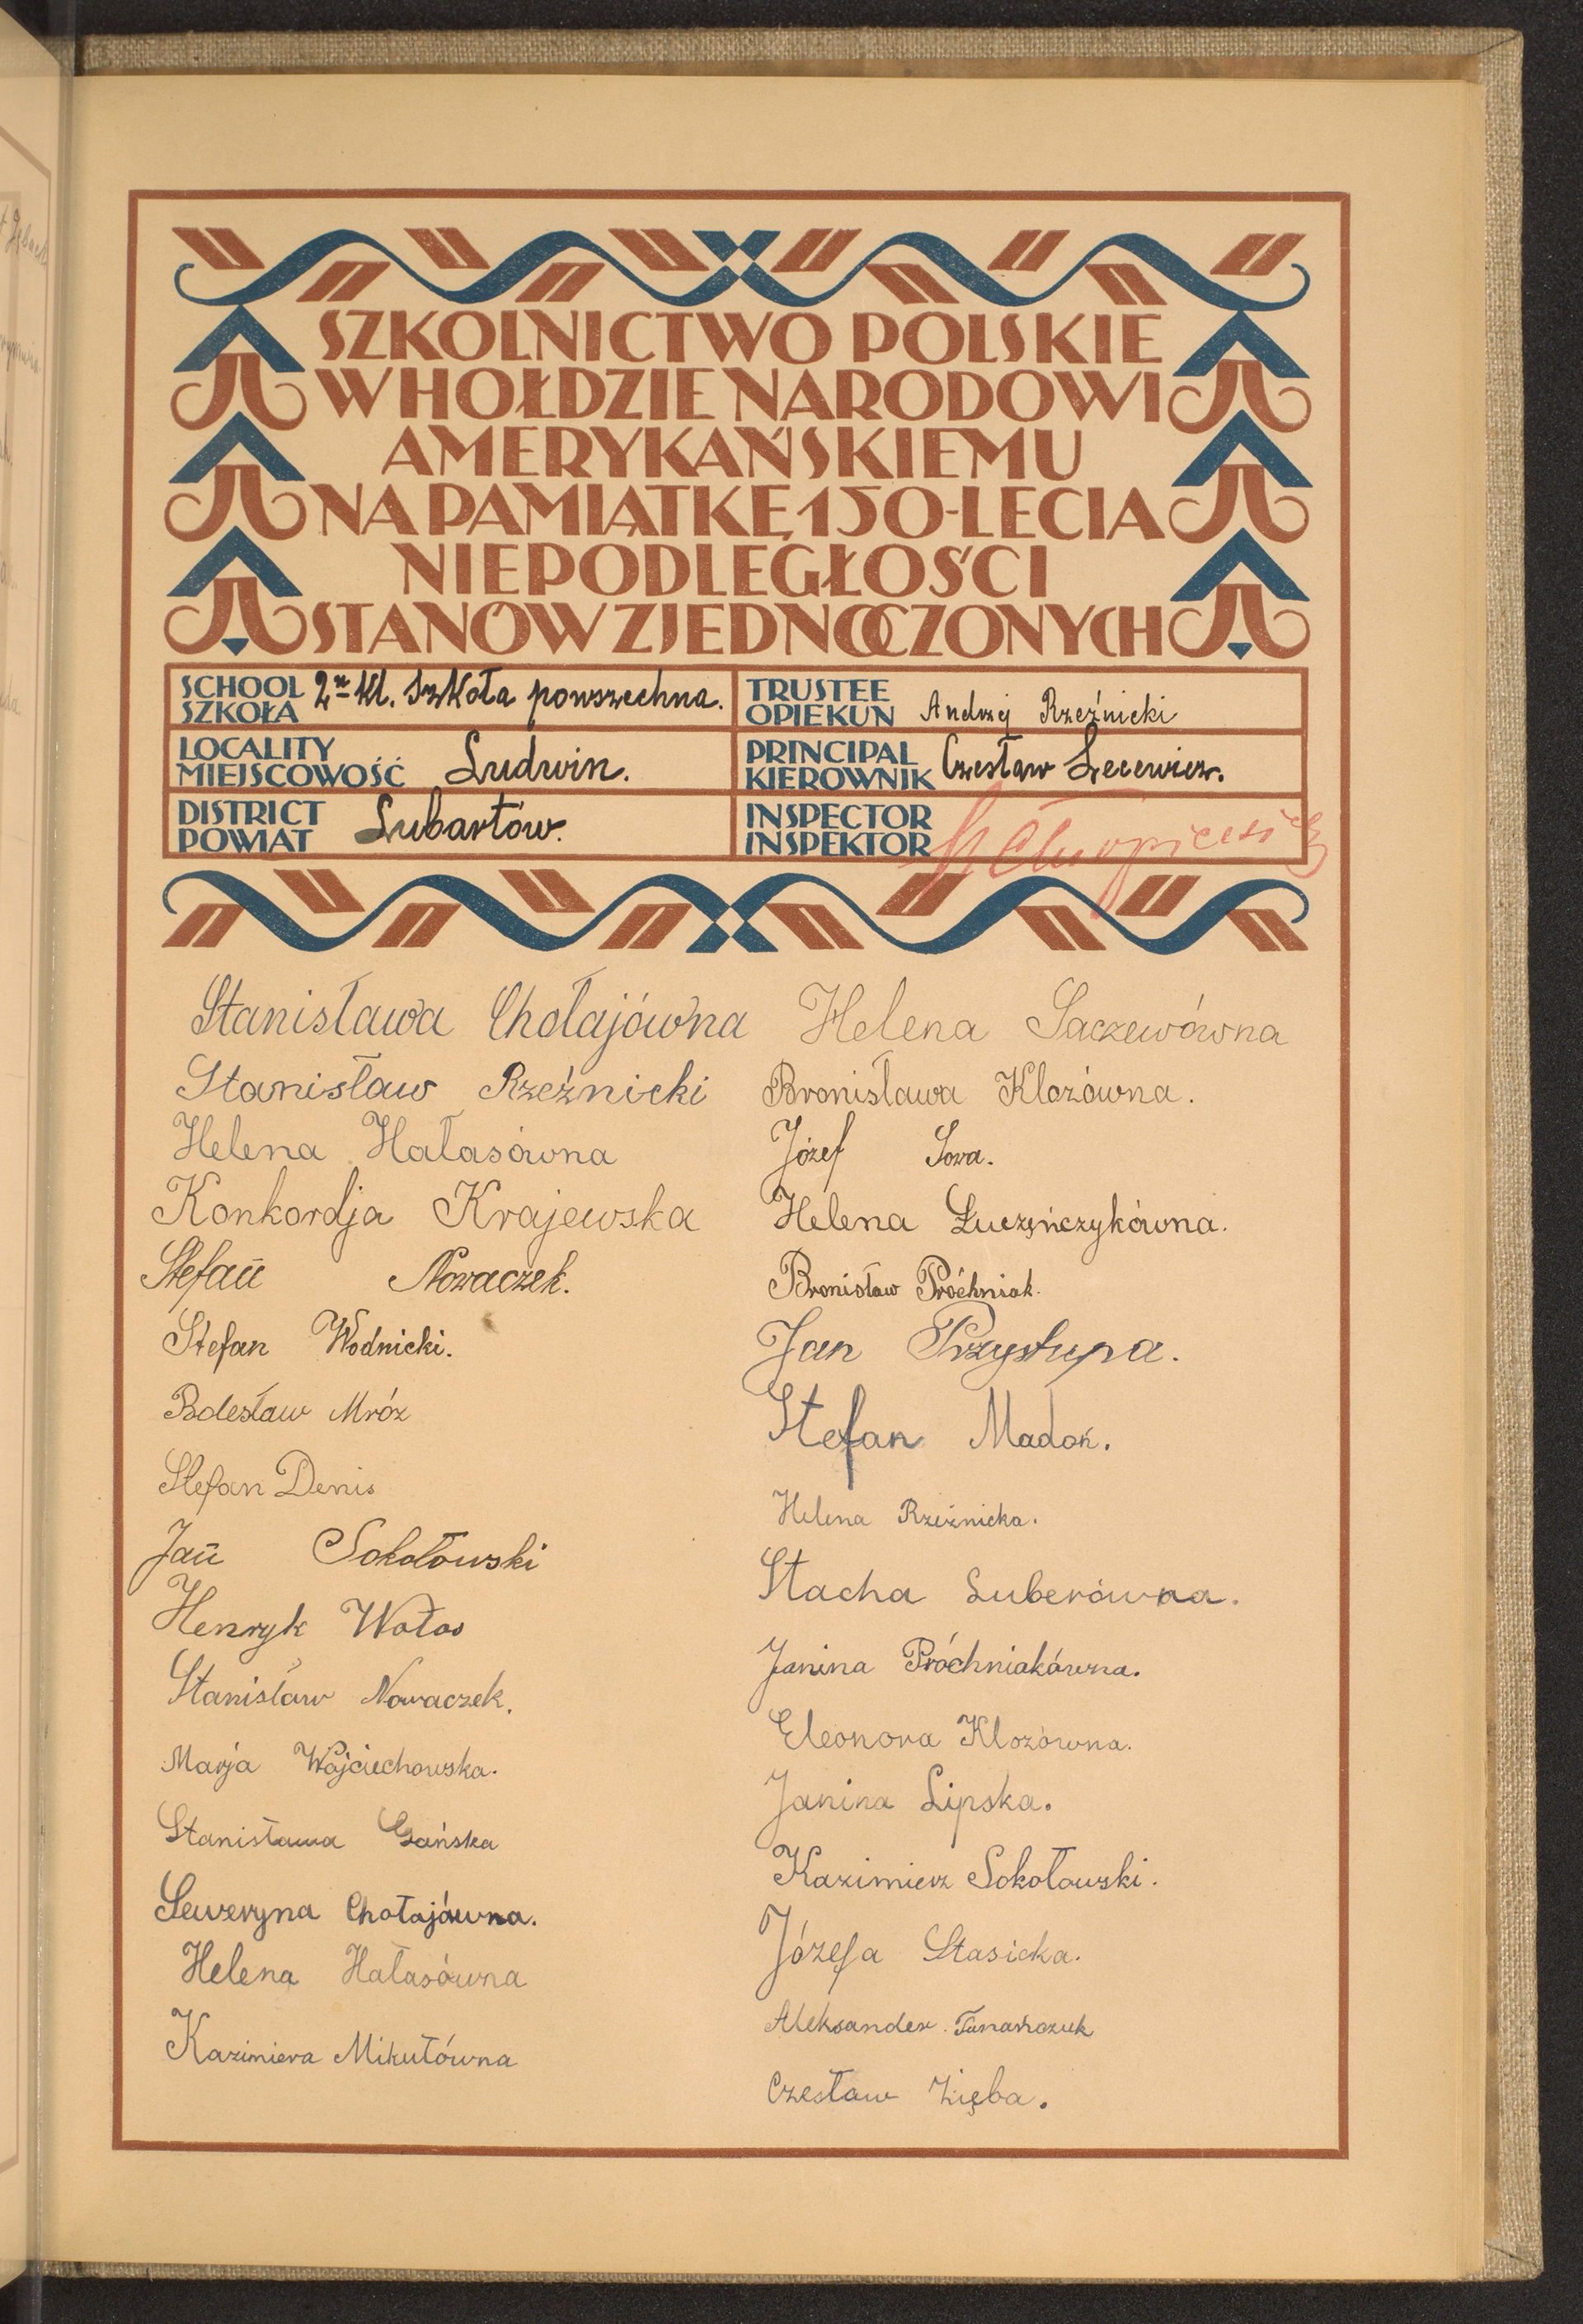 SZKOLNICTWO POLSKIE
W HOŁDZIE NARODOWI
AMERYKAŃSKIEMU
NA PAMIĄTKĘ 150-LECIA
NIEPODLEGŁOŚCI
STANÓW ZJEDNOCZONYCH
SCHOOL
SZKOŁA
2ᵘ Kl. Szkoła powszechna.
TRUSTEE
OPIEKUN
Andrzej Rzeźnicki
LOCALITY
MIEJSCOWOŚĆ
Ludwin.
PRINCIPAL
KIEROWNIK
Czesław Lecewicz.
DISTRICT
POWIAT
Lubartów.
INSPECTOR
INSPEKTOR
Stanisława Chołajówna
Stanisław Rzeźnicki
Helena Hałasówna
Konkordja Krajewska
Stefan Nowaczek.
Stefan Wodnicki.
Bolesław Mróz
Stefan Denis
Jan Sokołowski
Henryk Wołos
Stanisław Nowaczek.
Marja Wojciechowska.
Stanisława Gańska
Seweryna Chołajówna.
Helena Hałasówna
Kazimiera Mikułówna
Helena Saczewówna
Bronisława Klozówna.
Józef Sowa.
Helena Łuczeńczykówna.
Bronisław Próchniak.
Jan Przystupa.
Stefan Madok.
Helena Rzeźnicka.
Stacha Luberówna.
Janina Próchniakówna.
Eleonora Klozówna.
Janina Lipska.
Kazimierz Sokołowski.
Józefa Stasicka.
Aleksander
Czesław Zięba.